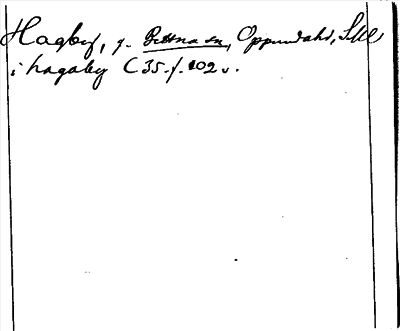 Hagby, g. Bettna sn, Oppunda hd, Södl
i hagaby C 35 f. 102 v.